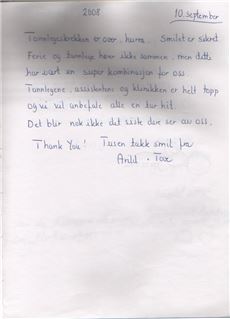 2008 10. september
Tannlegeskrekken er over, hurra. Smilet er sikret
Ferie og tannlege hører ikke sammen, men dette
har vært en super kombinasjon for oss.
Tannlegene, assistentene og klinikken er helt topp
og vi vil anbefale alle en tur hit.
Det blir nok ikke det siste dere ser av oss.
Thank You! Tusen takk smil fra
Arild . Tove